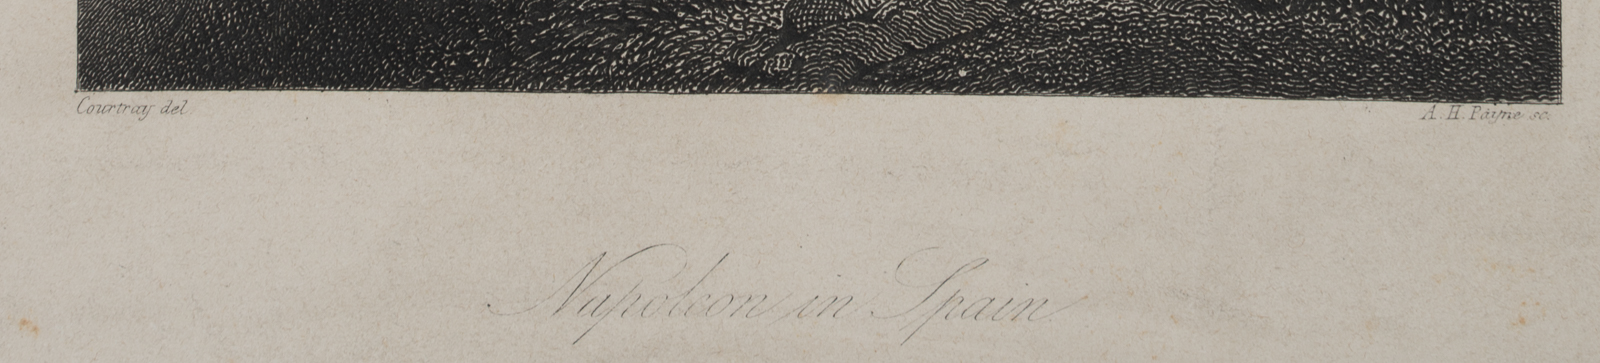 Courtray del
A. H. Payne sc.
Napoleon in Spain